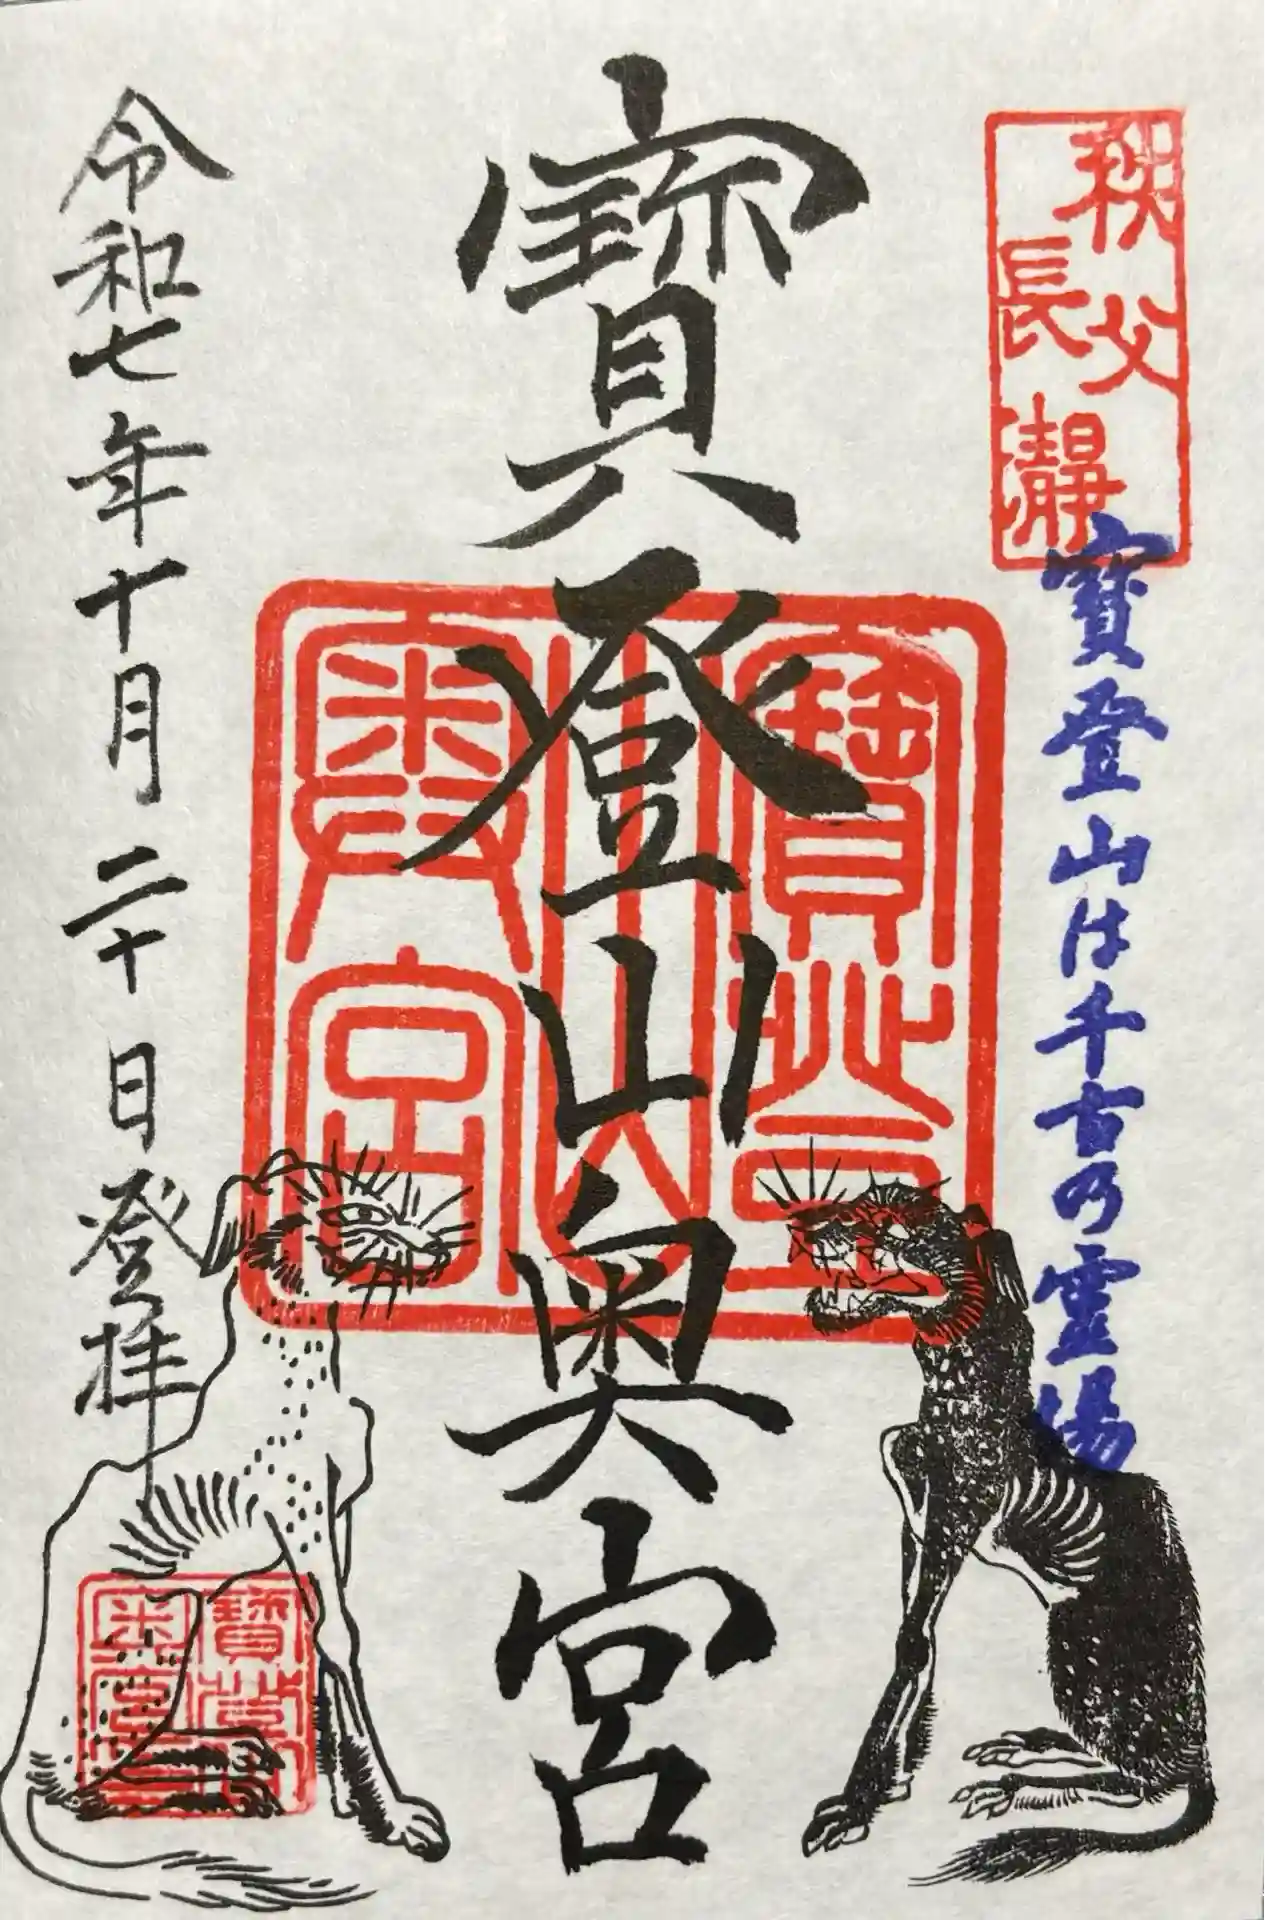 秩父
長瀞
寶登山は千古の霊場
寶登山奥宮
寶登
山
奥宮
令和七年十月二十日登拝